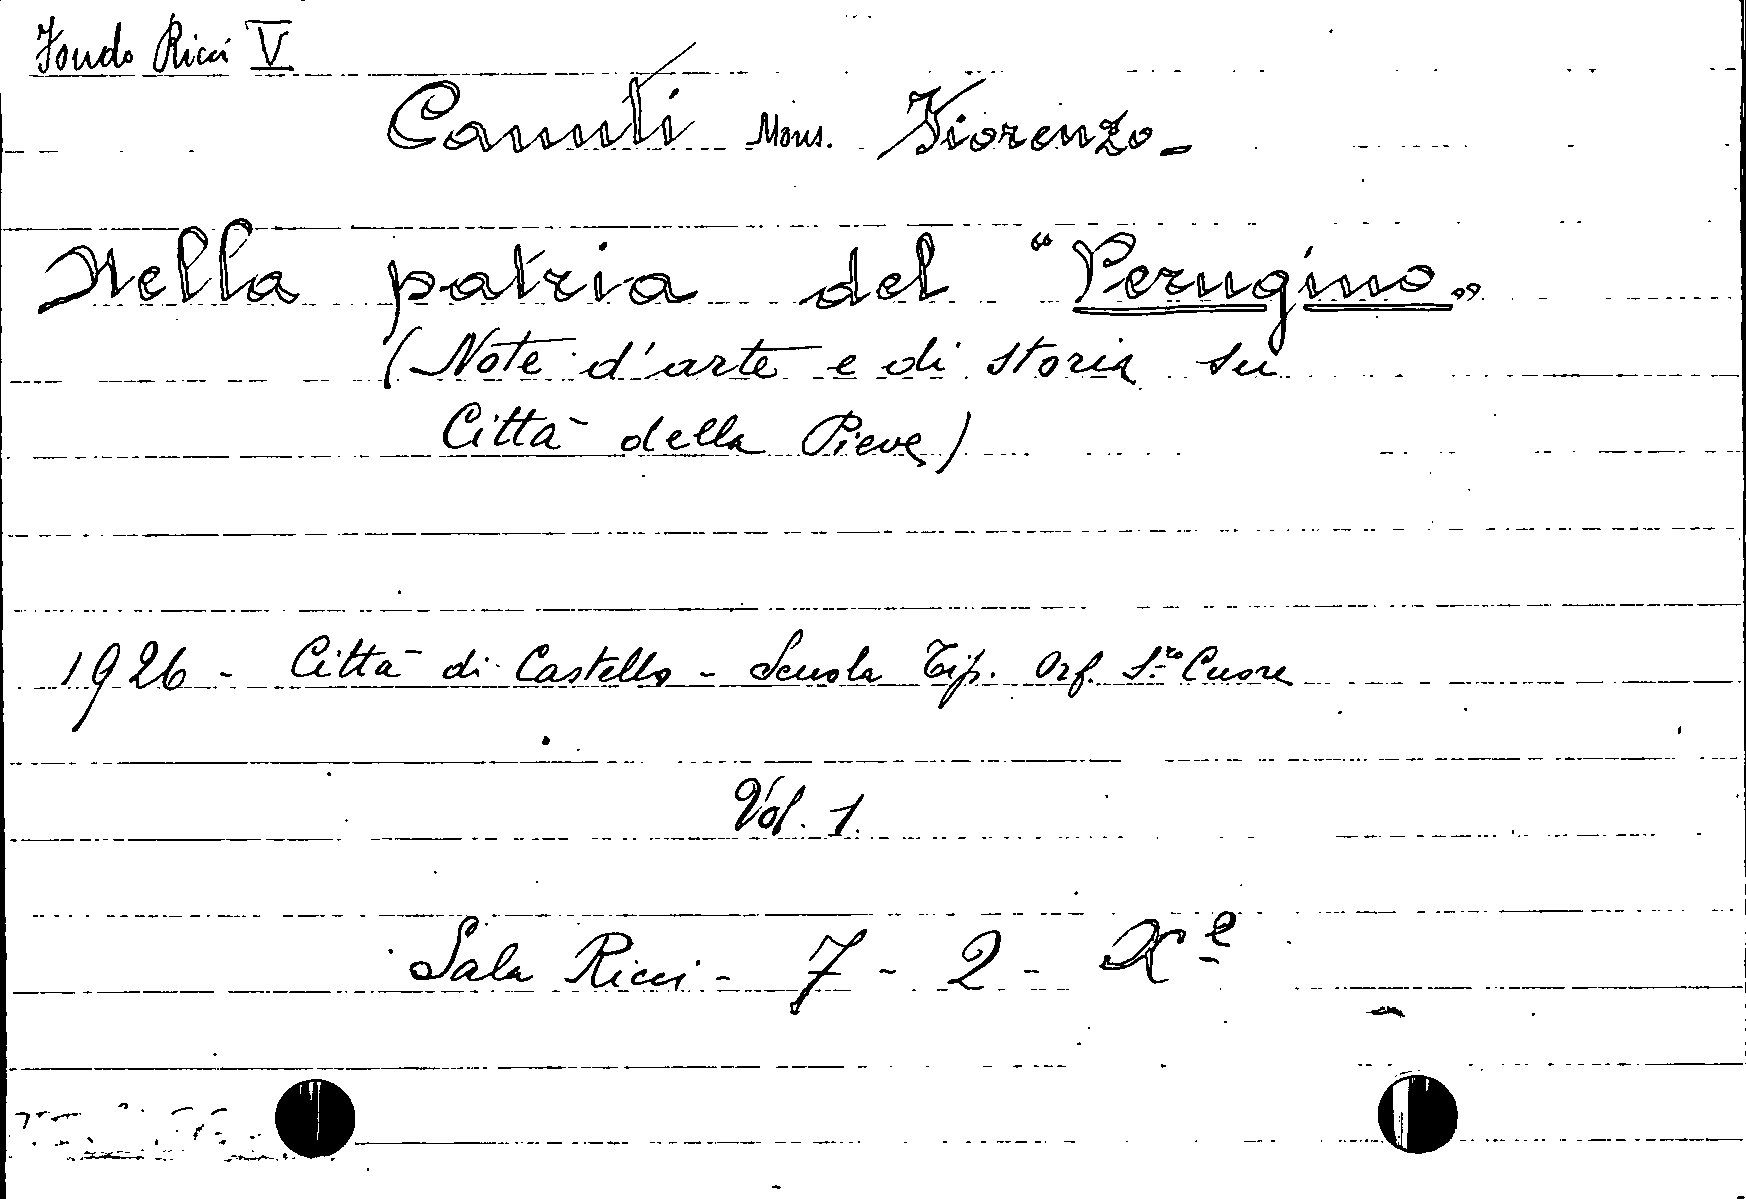 Fondo Ricci V
Canuti Mons. Fiorenzo -
Nella patria del "Perugino"
(Note d'arte e di storia su
Città della Pieve)
1926 - Città di Castello - Scuola Tip. Orf. S.ro Cuore
Vol. 1.
Sala Ricci - 7 - 2 -